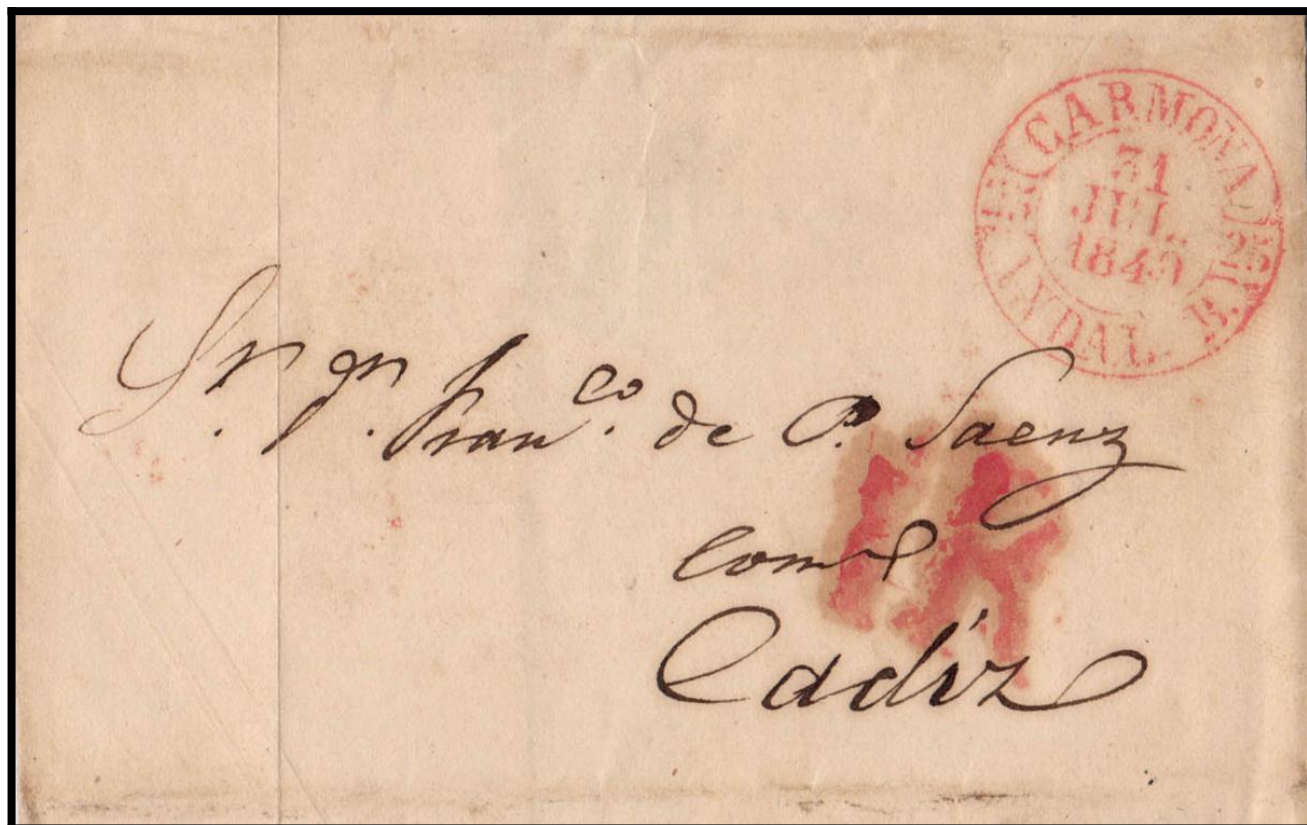 CARMONA 25
31
JUL.
1849
ANDAL. B.
Sr. Dn. Franco. de P. Saenz
Cadiz